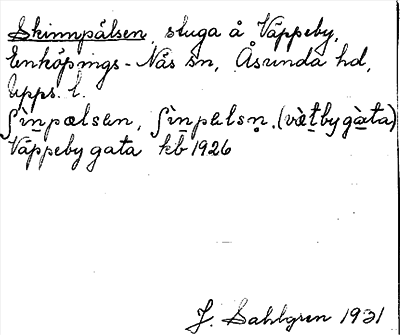 Skinnpälsen, stuga å Väppeby,
Enköpings-Näs sn, Åsunda hd,
Upps. l.
ʃìn̲pælsen, ʃìn̲pælsn̥. (væ̀t̲bygàta)
Väppeby gata kb 1926
J. Sahlgren 1931